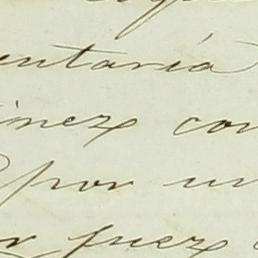 entaría
inez con
por un
juez